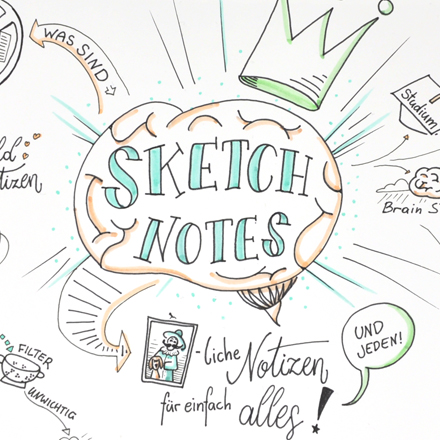 WAS SIND
SKETCH
NOTES
Studium
Brain
-liche Notizen
für einfach alles!
UND
JEDEN!
FILTER
UNWICHTIG